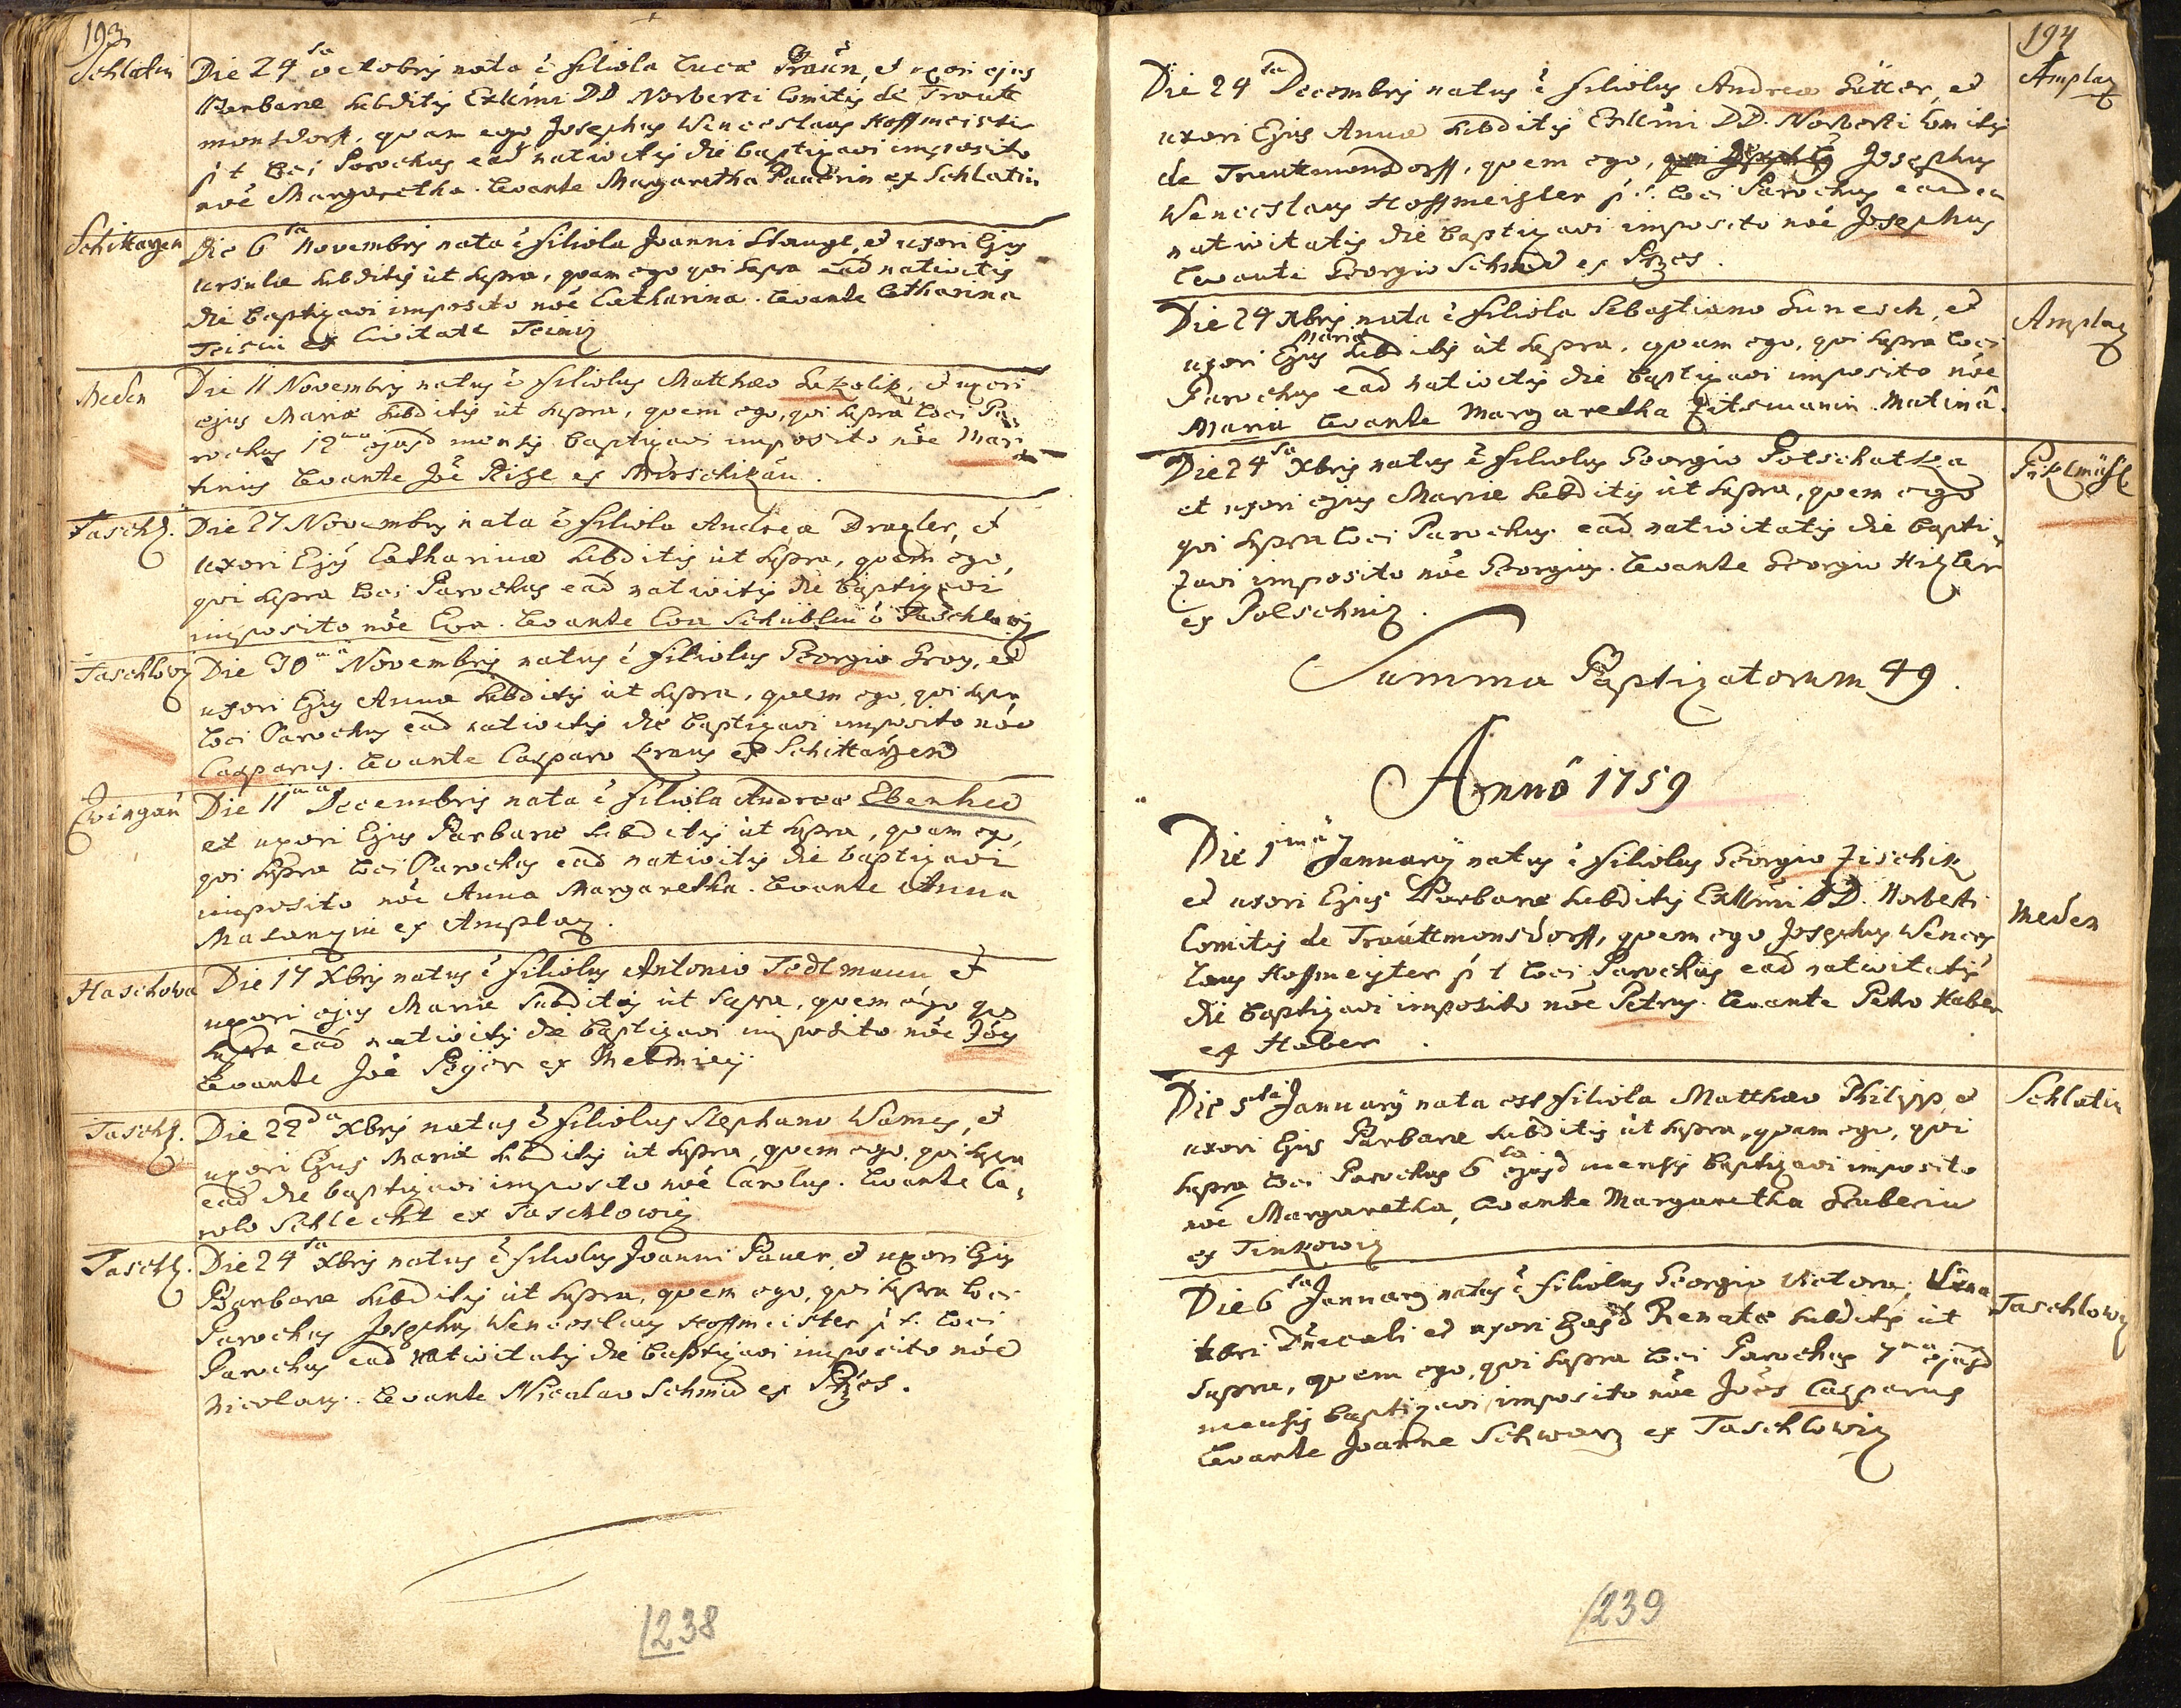 193
Schlatin
Die 24ta octobris nata ē filiola Lucæ Praün, et uxori ejus
Barbaræ subditis Exllmi DD Norberti Comitis de Trautt
monsdorff, quam ego Josephus Wenceslaus Hoffmeister
p t loci Parochus ead nativitis die baptizavi imposito
noē Margaretha. levante Margaretha Pauerin ex Schlatin
Schittarzen
Die 6ta Novembris nata ē filiola Joanni Stangl, et uxori Ejus
Ursulæ subditis ut supra, quam ego qui supra ead nativitis
die baptizavi imposito noē Catharina. levante Catharina
ex Civitate Teiniz
Meden
Die 11 Novembris natus ē filiolus Matthæo Sokolik, et uxori
ejus Mariæ subditis ut supra, quem ego, qui supra loci Pa
rochus 12ma ejusd mensis baptizavi imposito noē Mar
tinus levante Joē Rizl ex
Taschl.
Die 27 Novembris nata ē filiola Andreæ Draxler, et
uxori Ejus Catharinæ subditis ut supra, quam ego,
qui supra loci Parochus ead nativitis die baptizavi
imposito noē Eva. levante Eva Schüblin ex Taschlowiz
Taschlowiz
Die 30ma Novembris natus ē filiolus Georgio Groz, et
uxori Ejus Annæ subditis ut supra, quem ego, qui supra
loci Parochus ead nativitis die baptizavi imposito noē
Casparus. levante Casparo Kraus ex Schittarzen
Zwingau
Die 11ma Decembris nata ē filiola Andreæ Ebenhed
et uxori Ejus Barbaræ subditis ut supra, quam ego,
qui supra loci Parochus ead nativitis die baptizavi
imposito noē Anna Margaretha. levante Anna
ex Amplaz.
Haschowa
Die 17 Xbris natus ē filiolus Antonio Todtmann et
uxori ejus Mariæ subditis ut supra, quem ego qui
supra ead nativitis die baptizavi imposito noē Joēs
levante Joē Payer ex Metmiey
Taschl.
Die 22da Xbris natus ē filiolus Stephano Wames, et
uxori Ejus Mariæ subditis ut supra, quem ego, qui supra
ead die baptizavi imposito noē Carolus. levante Ca,
rolo Schlecht ex Taschlowiz
Taschl.
Die 24ta Xbris natus ē filiolus Joanni Pauer, et uxori Ejus
Barbaræ subditis ut supra, quem ego, qui supra loci
Parochus Josephus Wenceslaus Hoffmeister p t. loci
Parochus ead nativitatis die baptizavi imposito noē
Nicolaus. levante Nicolao Schmid ex Przes.
1238
194
Amplaz
Die 24ta Decembris natus ē filiolus Andreæ Sütter, et
uxori Ejus Annæ subditis Exllmi DD. Norberti Comitis
de Trauttmonsdorff, quem ego, Josephus
Wenceslaus Hoffmeister p t. loci Parochus eadem
nativitatis die baptizavi imposito noē Josephus
levante Georgio Schmid ex Przes.
Amplaz
Die 24 Xbris nata ē filiola Sebastiano Sunesch, et
uxori Ejus Mariæ subditis ut supra, quam ego, qui supra loci
Parochus ead nativitis die baptizavi imposito noē
Maria levante Margaretha Zitsmanin Matinâ.
Piklmühl
Die 24ta Xbris natus ē filiolus Georgio Potschatka
et uxori ejus Mariæ subditis ut supra, quem ego
qui supra loci Parochus ead nativitatis die bapti,
zavi imposito noē Georgius. levante Georgio Hitzler
ex Polschniz.
Summa Baptizatorum 49.
Annô 1759
Meden
Die 1mâ January natus ē filiolus Georgio Zischik
et uxori Ejus Barbaræ subditis Exllmi DD. Norberti
Comitis de Trauttmonsdorff, quem ego Josephus Wences
laus Hoffmeister p t loci Parochus ead nativitatis
die baptizavi imposito noē Petrus. levante Petro Haber
ex Haber.
Schlatin
Die 5ta January nata est filiola Matthæo Philipp et
uxori Ejus Barbaræ subditis ut supra, quam ego, qui
supra loci Parochus 6ta ejusd mensis baptizavi imposito
noē Margaretha, levante Margaretha Gruberin
ex Tinkowiz
Taschlowiz
Die 6ta January natus ē filiolus Georgio Victora,
et uxori Ejusd Renatæ subditis ut
supra, quem ego, qui supra loci Parochus 7ma ejusd
mensis baptizavi imposito noē Joēs Casparus
levante Joanne Schwarz ex Taschlowiz
1239